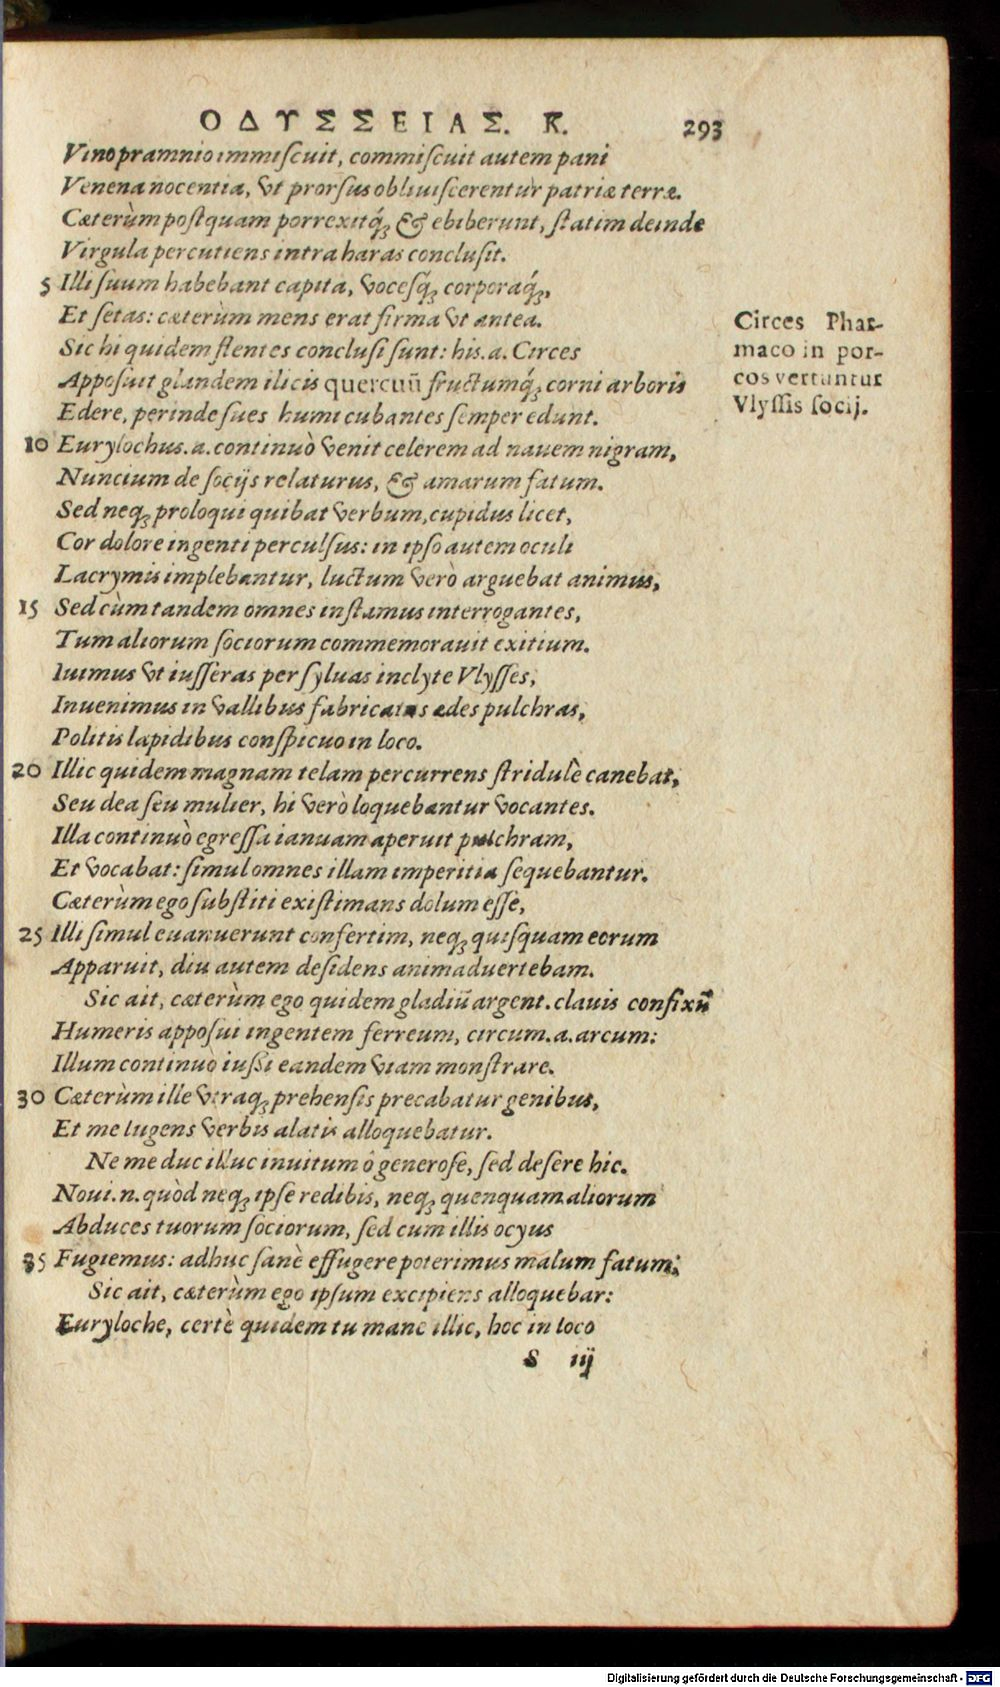 ΟΔΥΣΣΕΙΑΣ. Κ. 293
Vino pramnio immiscuit, commiscuit autem pani
Venena nocentia, vt prorsus obliuiscerentur patriæ terræ.
Cæterùm postquam porrexitq́; & ebiberunt, statim deinde
Virgula percutiens intra haras conclusit.
5 Illi suum habebant capita, vocesq́; corporaq́;,
Et setas: cæterùm mens erat firma vt antea.
Sic hi quidem flentes conclusi sunt: his.a. Circes
Apposuit glandem ilicis quercuū fructumq́; corni arboris
Edere, perinde sues humi cubantes semper edunt.
10 Eurylochus.a.continuò venit celerem ad nauem nigram,
Nuncium de socijs relaturus, & amarum fatum.
Sed neq; proloqui quibat verbum, cupidus licet,
Cor dolore ingenti perculsus: in ipso autem oculi
Lacrymis implebantur, luctum verò arguebat animus,
15 Sed cùm tandem omnes instamus interrogantes,
Tum aliorum sociorum commemorauit exitium.
Iuimus vt iusseras per syluas inclyte Vlysses,
Inuenimus in vallibus fabricatas ædes pulchras,
Politis lapidibus conspicuo in loco.
20 Illic quidem magnam telam percurrens stridulè canebat,
Seu dea seu mulier, hi verò loquebantur vocantes.
Illa continuò egressa ianuam aperuit pulchram,
Et vocabat: simul omnes illam imperitia sequebantur.
Cæterùm ego substiti existimans dolum esse,
25 Illi simul euanuerunt confertim, neq; quisquam eorum
Apparuit, diu autem desidens animaduertebam.
Sic ait, cæterùm ego quidem gladiū argent.clauis confixū
Humeris apposui ingentem ferreum, circum.a.arcum:
Illum continuò iussi eandem viam monstrare.
30 Cæterùm ille vtraq; prehensis precabatur genibus,
Et me lugens verbis alatis alloquebatur.
Ne me duc illuc inuitum ô generose, sed desere hic.
Noui.n.quòd neq; ipse redibis, neq; quenquam aliorum
Abduces tuorum sociorum, sed cum illis ocyus
35 Fugiemus: adhuc sanè effugere poterimus malum fatum:
Sic ait, cæterùm ego ipsum excipiens alloquebar:
Euryloche, certè quidem tu mane illic, hoc in loco
S iij
Circes Phar-
maco in por-
cos vertuntur
Vlyssis socij.
Digitalisierung gefördert durch die Deutsche Forschungsgemeinschaft - DFG